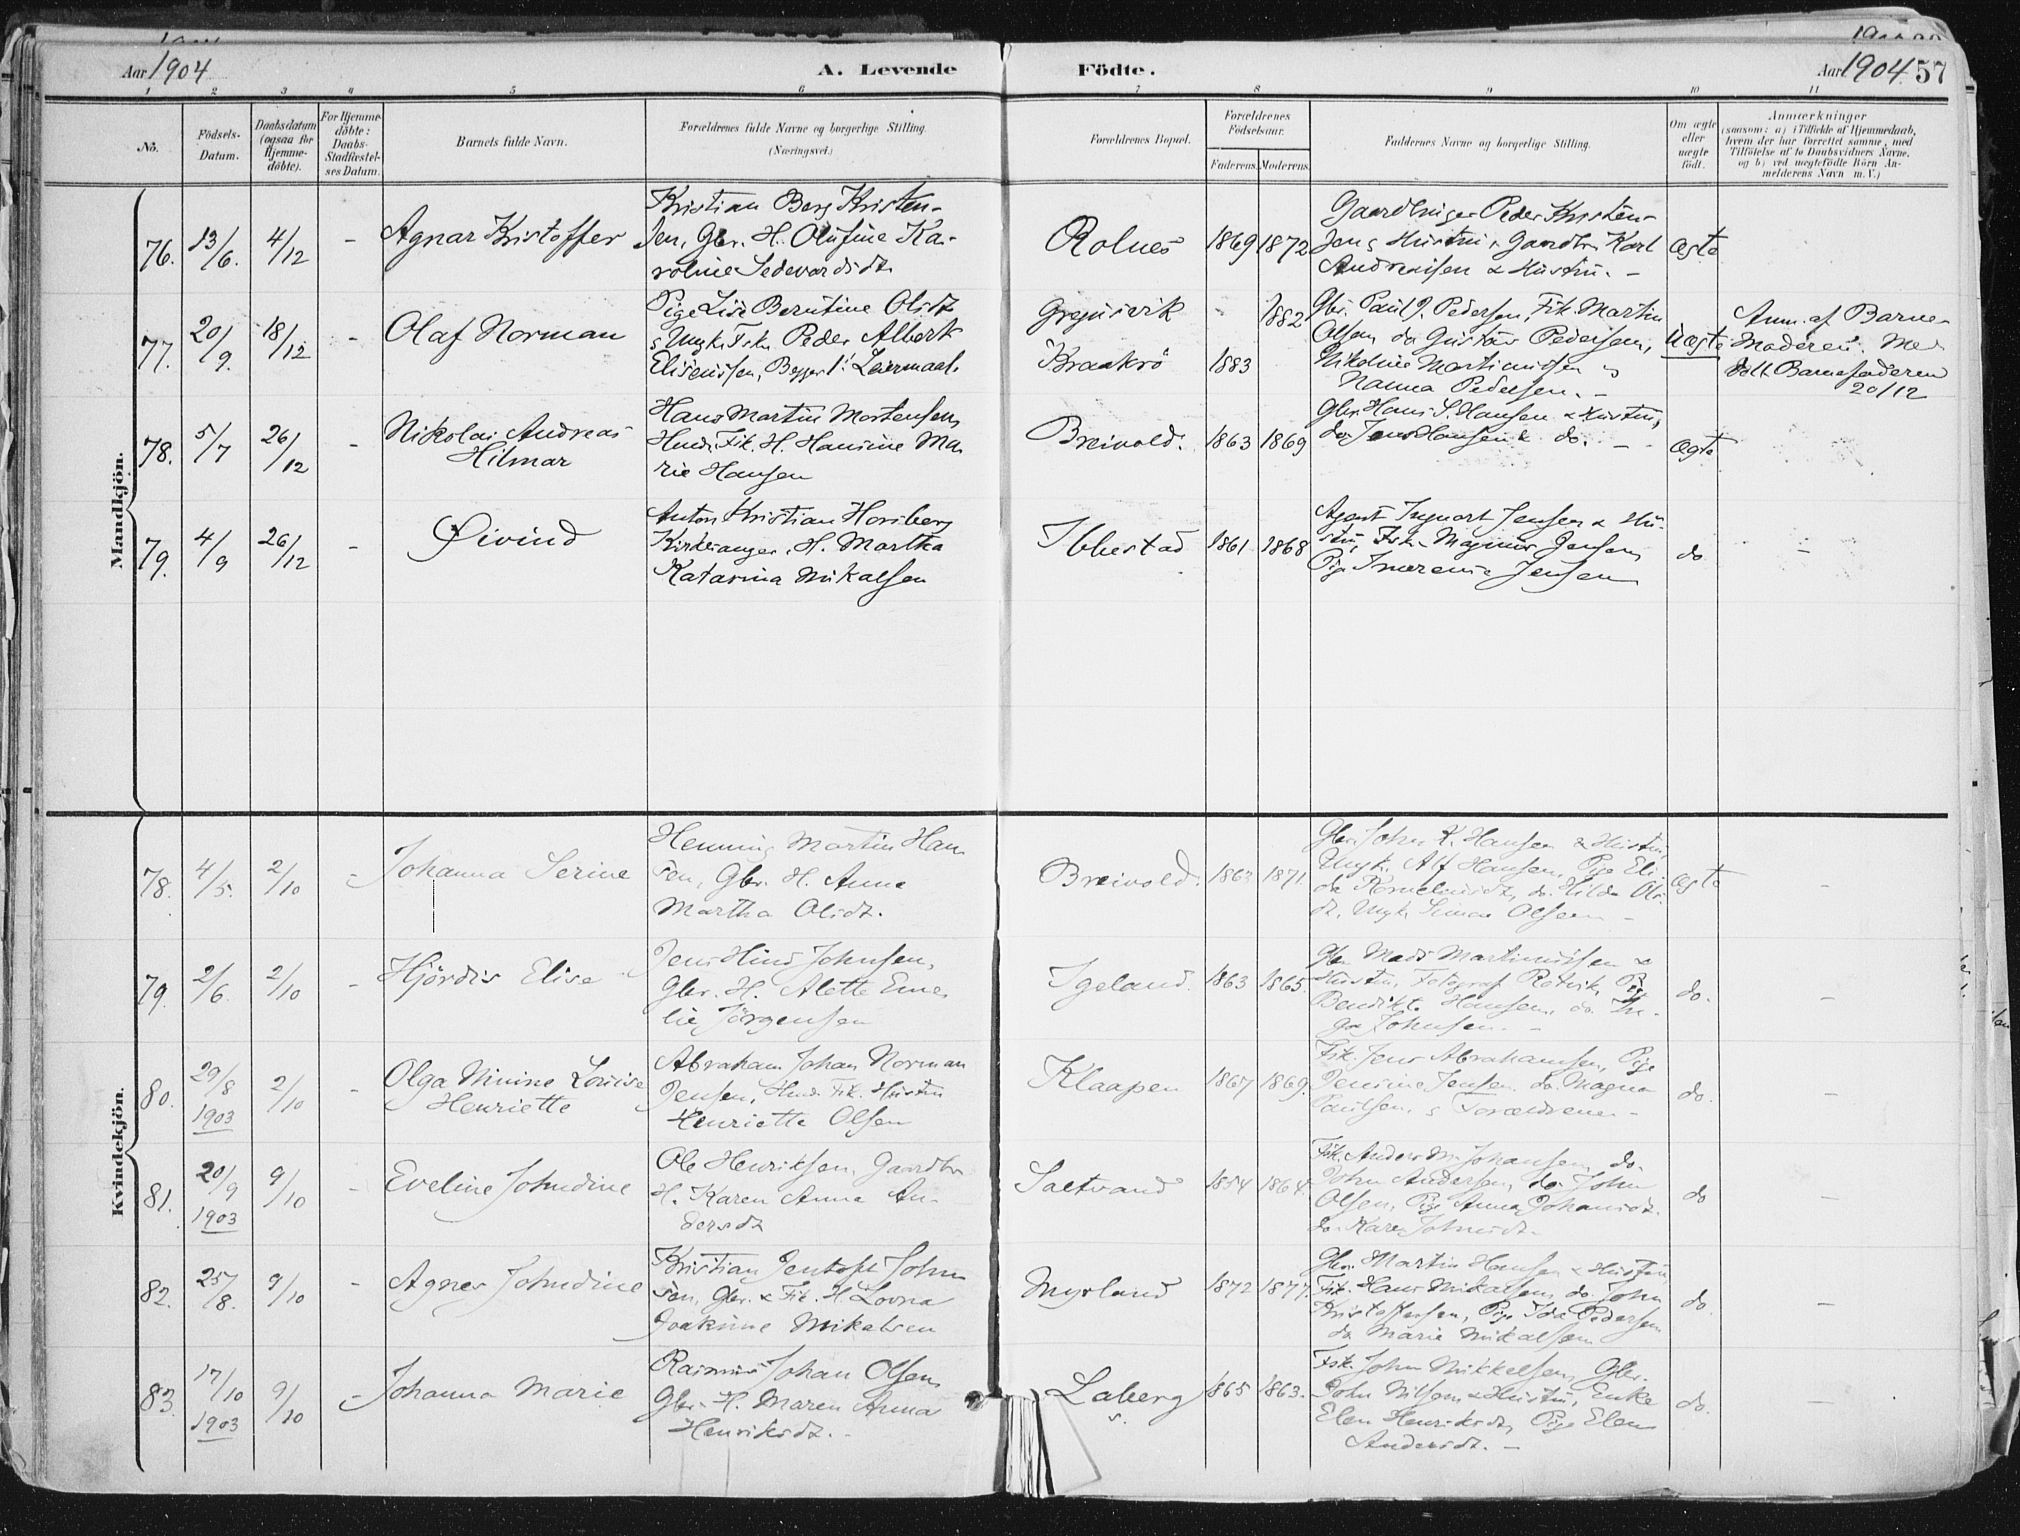 Aar 1904
A. Levende
Födte.
Aar 1904
57
1 2 3 4 5 6 7 8 9 10 11
No.
Födsels-Datum.
Daabsdatum (ogsaa for Hjemme-döbte).
For Hjemme-döbte: Daabs-Stadfæstel-ses Datum.
Barnets fulde Navn.
Forældrenes fulde Navne og borgerlige Stilling. (Næringsvei.)
Forældrenes Bopæl.
Forældrenes Födselsaar.
Faderens. Moderens.
Faddernes Navne og borgerlige Stilling.
Om ægte eller uægte födt.
Anmærkninger
(saasom: a) i Tilfælde af Hjemmedaab,
hvem der har forrettet samme, med
Tilföielse af to Daabsvidners Navne,
og b) ved uægtefödte Börn An-
melderens Navn m. V.)
Mandkjön.
76. 13/6. 4/12 - Agnar Kristoffer
Kristian Berg Kristen-
sen, Gbr. H. Olufine Ka-
roline Sedevardsdt.
Rolnes 1869 1872
Gaardbruger Peder Kristen-
sen & Hustru, Gaardbr. Karl
Andreassen & Hustru. -
ægte
77. 20/9. 18/12 - Olaf Norman
Pige Lise Berntine Olsdt
& Ungk. Fsk. Peder Albert
Eliseussen, Begges 1' Leiermaal.
Grepsvik - 1882
Kraakrö 1883
Gbr. Paul J. Pedersen, Fsk. Martin
Olsen, do Gustav Pedersen,
Nikoline Martinussen og
Hanna Pedersen. -
Uægte
Anm. af Barne-
Moderen. Med-
delt Barnefaderen
20/12
78. 5/7 26/12 - Nikolai Andreas
Hilmar
Hans Martin Mortensen,
Husm. Fsk. H. Hansine Ma-
rie Hansen
Breivold. 1863 1869
Gbr. Hans S. Hansen & Hustru,
do Jens Hansen & do. -
ægte
79. 4/9 26/12 - Øivind
Anton Kristian Horsberg
Kirkesanger, H. Martha
Katarina Mikalsen
Ibbestad 1861 1868
Agent Ingvart Jensen & Hu-
stru, Fsk. Magnus Jensen,
Pige Jensen
do -
Kvindekjön.
78. 4/5. 2/10 - Johanna Serine
Henning Martin Han-
sen, Gbr. H. Anna
Martha Olsdt.
Breivold. 1863 1871.
Gbr. Johan K. Hansen & Hustru,
Ungk. Alf Hansen, Pige Eli-
da Korneliusdt, do. Hilda Ols-
dt, Ungk. Simon Olsen -
ægte -
79. 2/6. 2/10 - Hjördis Elise
Jens Hind Johnsen,
Gbr. H. Alette Eme-
lie Jörgensen
Igeland. 1863 1865.
Gbr. Mads Martinussen &
Hustru, Fotograf Rotvik, Pige
Bendikte Hansen, do. In-
ga Johnsen. -
do. -
80. 29/8 1903 2/10 Olga Minine Lovise
Henriette
Abraham Johan Norman
Jensen, Husm. Fsk. Hustru
Henriette Olsen
Klaapen 1867 1869.
Fsk. Jens Abrahamsen, Pige
Jensine Jensen, do. Magna
Paulsen, & Forældrene -
do. -
81. 20/9 1903 9/10 - Eveline Johndine
Ole Henriksen, Gaardbr.
H. Karen Anna An-
dersdt
Saltvand 1854 1864.
Fsk. Anders M. Johansen, do.
John Andersen, do. John
Olsen, Pige Anna Johansdt.
do. Karen Johnsdt.
do -
82. 25/8. 9/10 - Agnes Johndine
Kristian Jentoft John-
sen, Gbr. & Fsk. H. Lovna
Joakime Mikalsen
Myrland 1872 1877.
Gbr. Martin Hansen & Hustru,
Fsk. Hans Mikalsen, do. John
Kristoffersen, Pige Ida Pedersen
do Marie Mikalsen
do. -
83. 17/10 1903 9/10 - Johanna Marie
Rasmus Johan Olsen,
Gbr. H. Maren Anna
Henriksdt. -
Laberg
s.
1865 1863.
Fsk. John Mikkelsen, Gbr.
John Nilsen & Hustru, Enke
Elen Henriksdt, Pige Elen
Andersdt. -
do. -